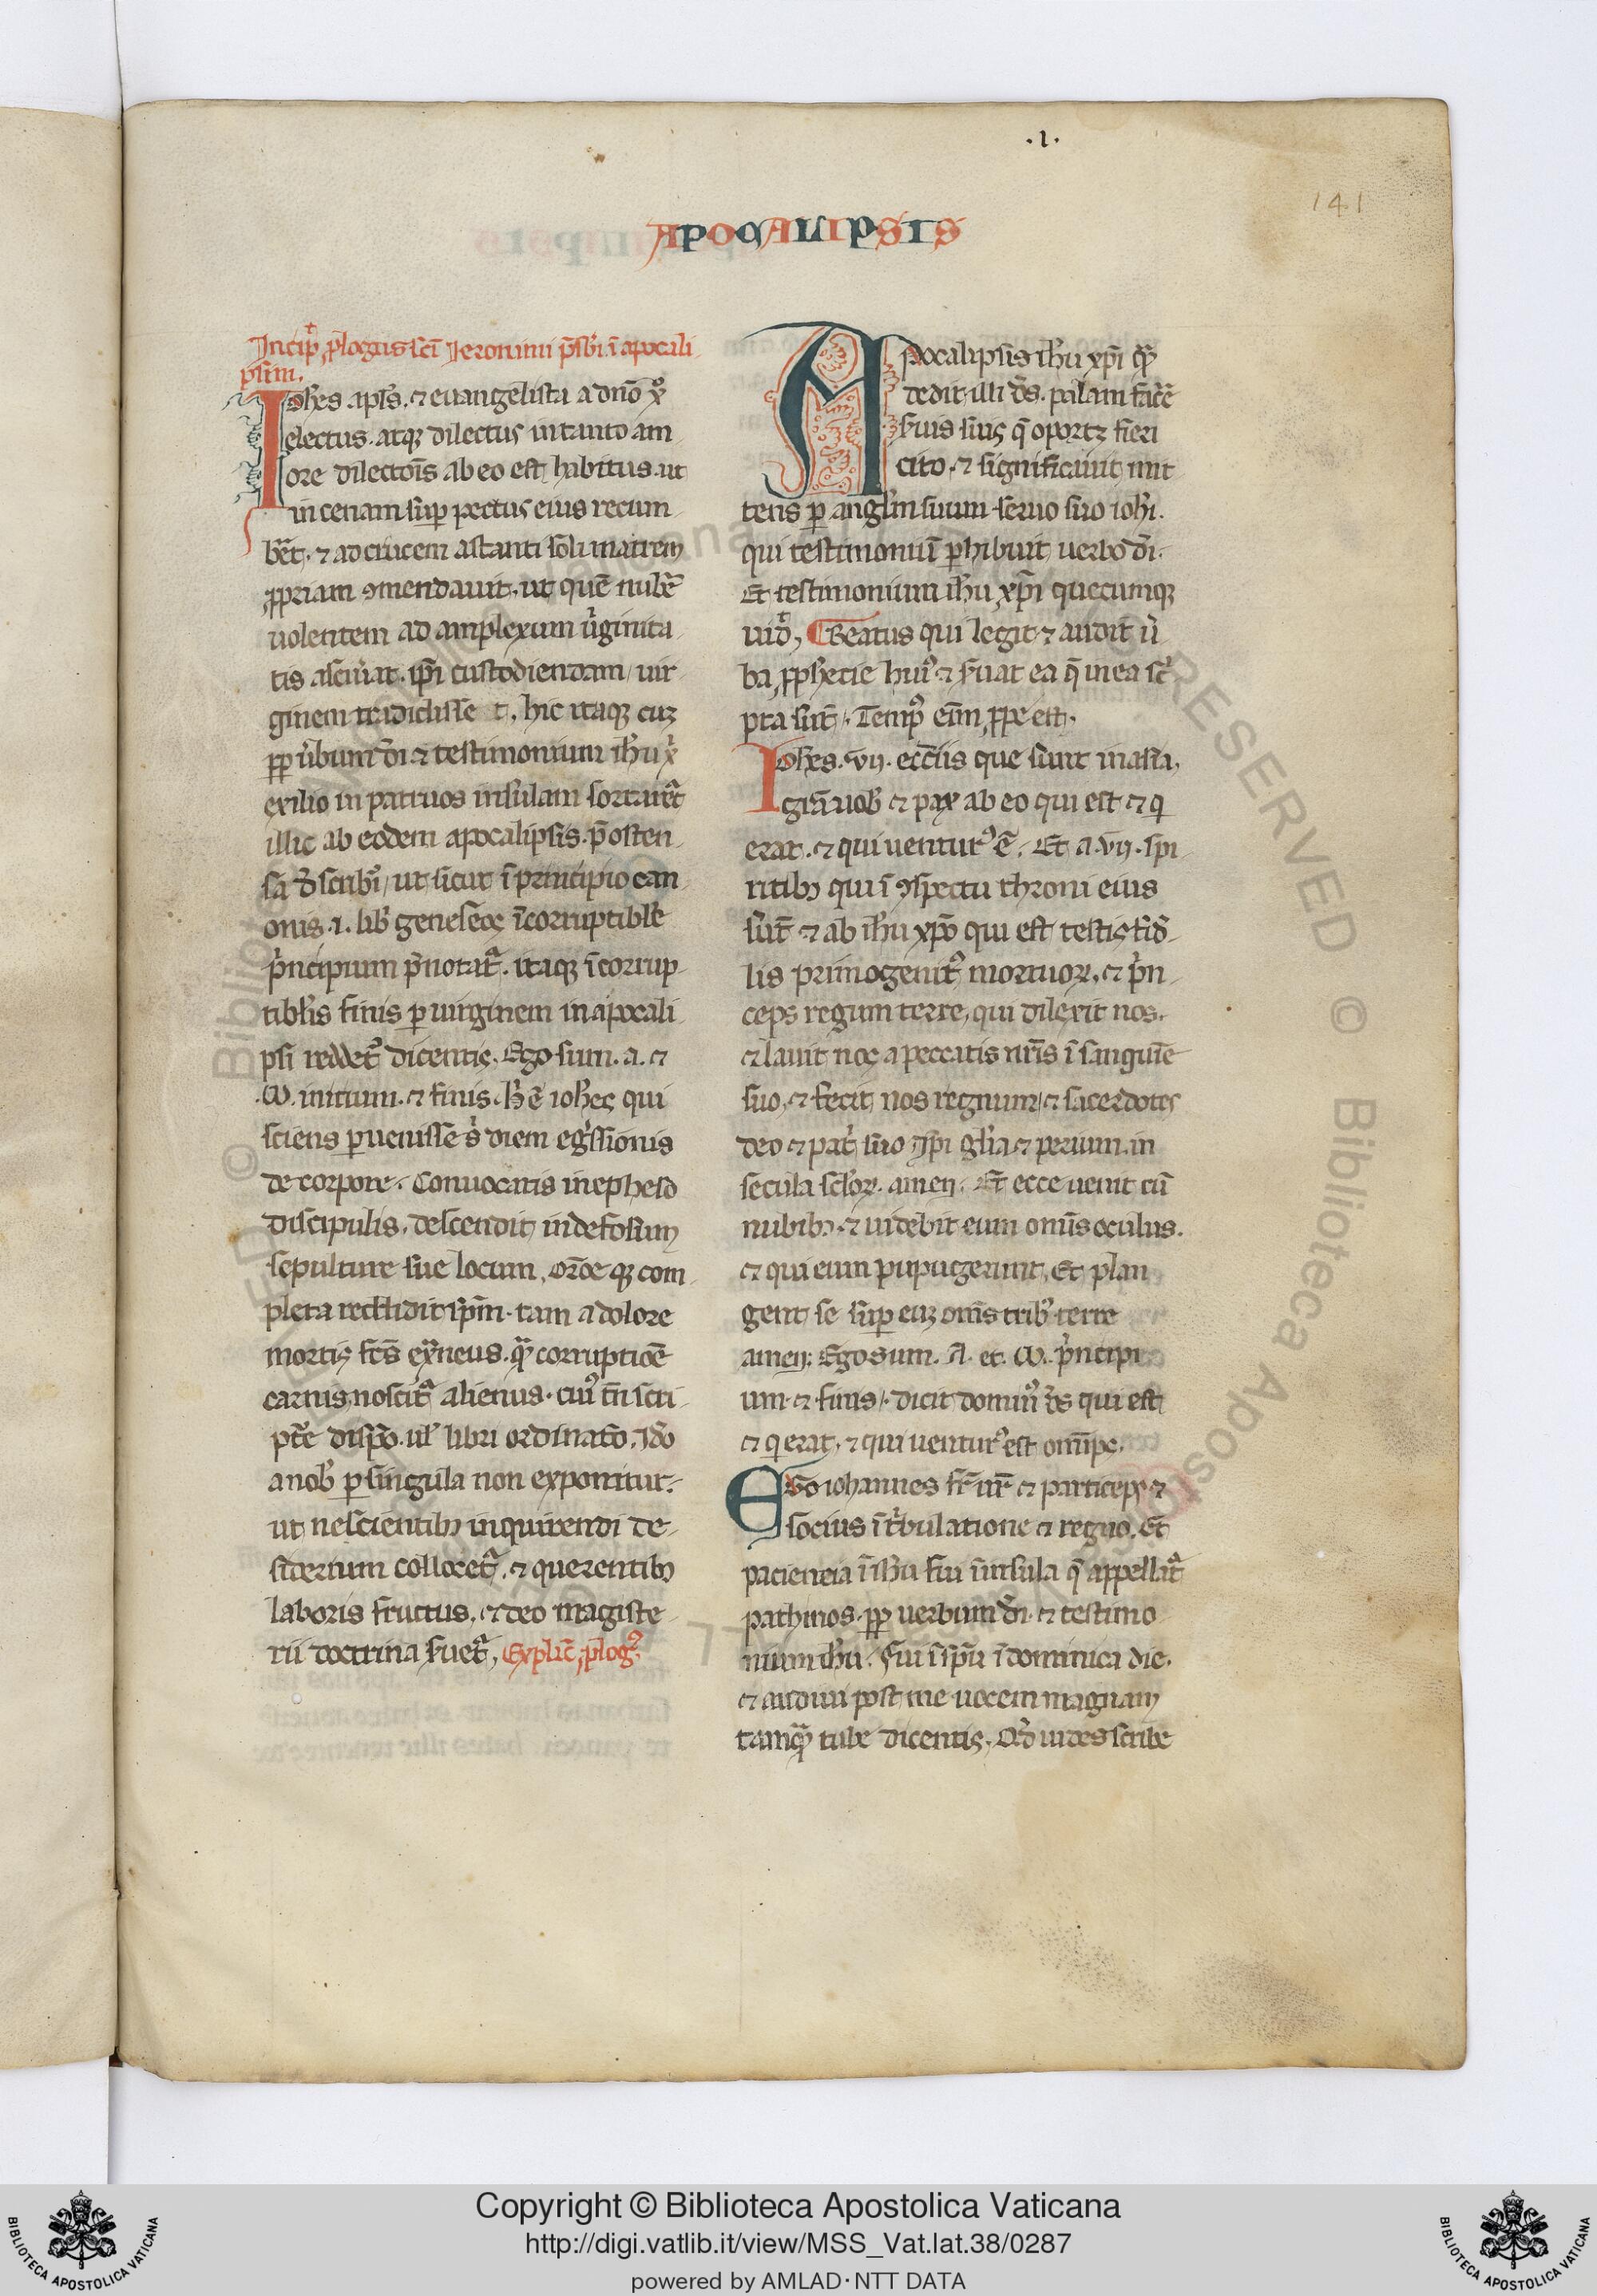 .1.
141
APOCALIPSIS
Incip̄ p̄logus sc̄i Ieronimi p̄sb'i ī apocali
psim.
Ioh̄es apl's. ⁊ euangelista a dn̄o x̄o
electus. atq; dilectus in tanto am
ore dilectōis ab eo est habitus. ut
in cenam sup̄ pectus eius recum
b̄et. ⁊ ad crucem astanti soli matrem
p̄priam ꝯmendauit. ut quē nubē
uolentem ad amplexum u'ginita
tis asciu'at. ip̄i custodiendam uir
ginem tradidisse t. hic itaq; cuz
pp̄ u'bum d̄i ⁊ testimonium ih̄u x̄
exilio in patmos insulam sortaret'
illic ab eodem apocalipsis. p̄osten
sa d̄scribi, ut sicut ī principio can
onis .1. lib' geneseos īcorruptibile
p'ncipium p̄notat'. itaq; īcorrup
tibl'is finis p̱ uirginem in apocali
psi reddet' dicentis. Ego sum .a. ⁊
.ω. initium. ⁊ finis. h̄ ē ioh̄es qui
sciens p̱uenisse s' diem eg'ssionis
de corpore. Conuocatis in epheso
discipulis. descendit in defosum
sepulture sue locum, or̄oe q; com
pleta reddidit sp̄m. tam a dolore
mortis fc̄s ext̄neus. q̄ corruptiōe
carnis noscit' alienus. cui' tn̄ scri
pt'e dispō. ul' libri ordinatō. Iđo
a nob' p̱ singula non exponitur.
ut nescientib; inquirendi de
siderium collocet'. ⁊ querentib;
laboris fructus. ⁊ deo magiste
rii doctrina s'uet'. Explic̄ p̄log'.
Apocalipsis ih̄u xp̄i q̄
dedit illi d̄s. palam fac'e
s'uis suis q̄ oportꝫ fieri
cito. ⁊ significauit mit
tens p̱ angl'm suum seruo suo ioh̄i.
qui testimoniū p̱hibuit uerbo d̄i.
Et testimonium ih̄u xp̄i quecumq;
uid̄. Beatus qui legit ⁊ audit u'
ba p̄phetie hui' ⁊ s'uat ea q̄ in ea sc'
pta sūt. Temp' eīm p̄pe est.
Ioh̄es. vij. ecc̄liis que sunt in asia.
gr̄a uob' ⁊ pax ab eo qui est ⁊ q̱
erat. ⁊ qui uentur' ē. Et a .vij. spi
ritib; qui ī ꝯspectu throni eius
sūt ⁊ ab ih̄u xp̄o qui est testis fid̄
lis primogenit' mortuoꝝ. ⁊ p'n
ceps regum terre, qui dilexit nos.
⁊ lauit nos a peccatis nr̄is ī sanguīe
suo, ⁊ fecit nos regnum ⁊ sacerdotes
deo ⁊ pat' suo ip̄i gl'a ⁊ perium. in
secula sc'loꝝ. amen. Et ecce uenit cū
nubib; ⁊ uidebit eum omīs oculus.
⁊ qui eum pupugerunt. Et plan
gent se sup̄ euz om̄s trib' terre
amen: Ego sum. A. et. ω. p'ncipi
um ⁊ finis. dicit domin' d̄s qui est
⁊ q̱ erat, ⁊ qui uentur' est om̄ipc̄.
Ego iohannes fr̄ ur̄ ⁊ particeps ⁊
socius ī t'bulatione ⁊ regno. Et
paciencia ī ih̄u fui ī insula q̄ appellat'
pathmos. pp̄ uerbum d̄i. ⁊ testimo
nium ih̄u. Fui ī sp̄u ī dominica die.
⁊ audiui post me uocem magnam
tamq̄ tube dicentis. Qđ uides scribe
Copyright © Biblioteca Apostolica Vaticana
http://digi.vatlib.it/view/MSS_Vat.lat.38/0287
powered by AMLAD·NTT DATA
BIBLIOTECA APOSTOLICA VATICANA
BIBLIOTECA APOSTOLICA VATICANA